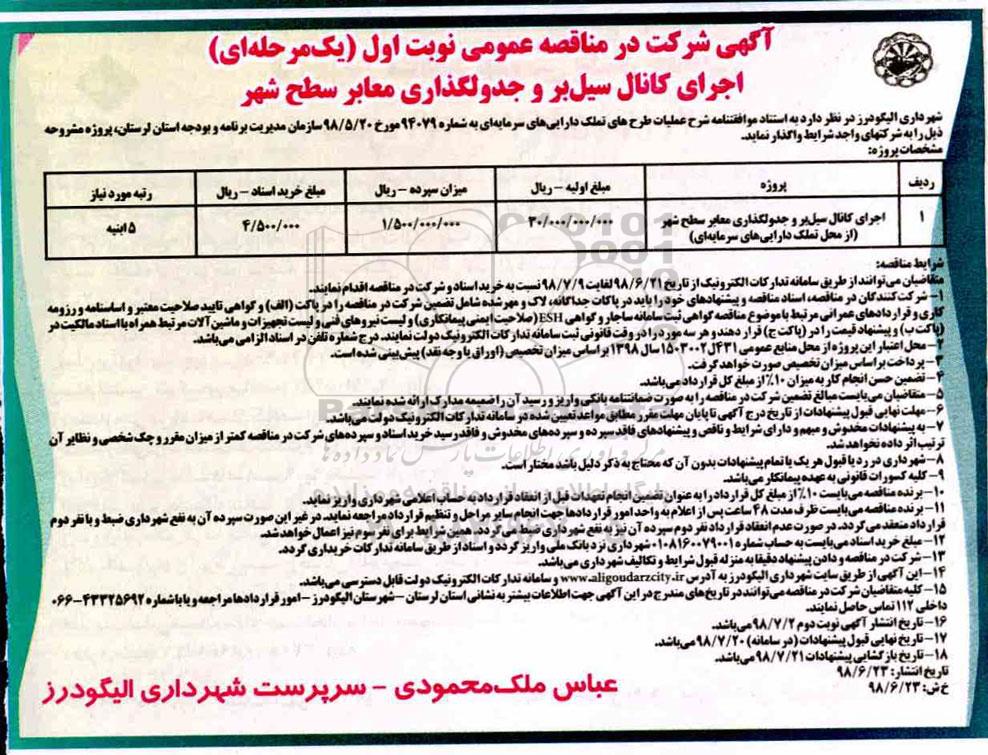 آگهی شرکت در مناقصه عمومی نوبت اول (یک‌مرحله‌ای)
اجرای کانال سیل‌بر و جدولگذاری معابر سطح شهر
شهرداری الیگودرز در نظر دارد به استناد موافقتنامه شرح عملیات طرح های تملک دارایی‌های سرمایه‌ای به شماره ۹۴۰۷۹ مورخ ۹۸/۵/۲۰ سازمان مدیریت برنامه و بودجه استان لرستان، پروژه مشروحه
ذیل را به شرکتهای واجد شرایط واگذار نماید.
مشخصات پروژه:
ردیف پروژه مبلغ اولیه – ریال میزان سپرده – ریال مبلغ خرید اسناد – ریال رتبه مورد نیاز
۱ اجرای کانال سیل‌بر و جدولگذاری معابر سطح شهر (از محل تملک دارایی‌های سرمایه‌ای) ۳۰/۰۰۰/۰۰۰/۰۰۰ ۱/۵۰۰/۰۰۰/۰۰۰ ۴/۵۰۰/۰۰۰ ۵ ابنیه
شرایط مناقصه:
متقاضیان می‌توانند از طریق سامانه تدارکات الکترونیک از تاریخ ۹۸/۶/۲۱ لغایت ۹۸/۷/۹ نسبت به خرید اسناد و شرکت در مناقصه اقدام نمایند.
۱– شرکت‌کنندگان در مناقصه، اسناد مناقصه و پیشنهادهای خود را باید در پاکات جداگانه، لاک و مهر شده شامل تضمین شرکت در مناقصه را در پاکت (الف) و گواهی تایید صلاحیت معتبر و اساسنامه و رزومه
کاری و قراردادهای عمرانی مرتبط با موضوع مناقصه گواهی ثبت سامانه ساجار و گواهی ESH (صلاحیت ایمنی پیمانکاری) و لیست نیروهای فنی و لیست تجهیزات و ماشین آلات مرتبط همراه با اسناد مالکیت در
(پاکت ب) و پیشنهاد قیمت را در (پاکت ج) قرار دهند و هر سه مورد را در وقت قانونی ثبت سامانه تدارکات الکترونیک دولت نمایند. درج شماره تلفن در اسناد الزامی می‌باشد.
۲– محل اعتبار این پروژه از محل منابع عمومی ۴۳۱ل۱۵۰۳۰۰۲ سال ۱۳۹۸ براساس میزان تخصیص (اوراق یا وجه نقد) پیش‌بینی شده است.
۳– پرداخت براساس میزان تخصیص صورت خواهد گرفت.
۴– تضمین حسن انجام کار به میزان ۱۰٪ از مبلغ کل قرارداد می‌باشد.
۵– متقاضیان می‌بایست مبالغ تضمین شرکت در مناقصه را به صورت ضمانتنامه بانکی واریز و رسید آن را ضمیمه مدارک ارائه شده نمایند.
۶– مهلت نهایی قبول پیشنهادات از تاریخ درج آگهی تا پایان مهلت مقرر مطابق مواعد تعیین شده در سامانه تدارکات الکترونیک دولت می‌باشد.
۷– به پیشنهادات مخدوش و مبهم و دارای شرایط و ناقص و پیشنهادهای فاقد سپرده و سپرده‌های مخدوش و فاقد رسید خرید اسناد و سپرده‌های شرکت در مناقصه کمتر از میزان مقرر و چک شخصی و نظایر آن
ترتیب اثر داده نخواهد شد.
۸– شهرداری در رد یا قبول هر یک یا تمام پیشنهادات بدون آن که محتاج به ذکر دلیل باشد مختار است.
۹– کلیه کسورات قانونی به عهده پیمانکار می‌باشد.
۱۰– برنده مناقصه می‌بایست ۱۰٪ از مبلغ کل قرارداد را به عنوان تضمین انجام تعهدات قبل از انعقاد قرارداد به حساب اعلامی شهرداری واریز نماید.
۱۱– برنده مناقصه می‌بایست ظرف مدت ۴۸ ساعت پس از اعلام به واحد امور قراردادها جهت انجام سایر مراحل و تنظیم قرارداد مراجعه نماید. در غیر این صورت سپرده آن به نفع شهرداری ضبط و با نفر دوم
قرارداد منعقد می‌گردد. در صورت عدم انعقاد قرارداد نفر دوم سپرده آن نیز به نفع شهرداری ضبط می‌گردد. همین شرایط برای نفر سوم نیز اعمال خواهد شد.
۱۲– مبلغ خرید اسناد می‌بایست به حساب شماره ۰۱۰۸۱۶۰۰۷۹۰۰۱ شهرداری نزد بانک ملی واریز گردد و اسناد از طریق سامانه تدارکات خریداری گردد.
۱۳– شرکت در مناقصه و دادن پیشنهاد دقیقا به منزله قبول شرایط و تکالیف شهرداری می‌باشد.
۱۴– این آگهی از طریق سایت شهرداری الیگودرز به آدرس www.aligoudarzcity.ir و سامانه تدارکات الکترونیک دولت قابل دسترسی می‌باشد.
۱۵– کلیه متقاضیان شرکت در مناقصه می‌توانند در تاریخ‌های مندرج در این آگهی جهت اطلاعات بیشتر به نشانی استان لرستان – شهرستان الیگودرز – امور قراردادها مراجعه و یا با شماره ۴۳۳۲۵۶۹۲–۰۶۶
داخلی ۱۱۲ تماس حاصل نمایند.
۱۶– تاریخ انتشار آگهی نوبت دوم ۹۸/۷/۲ می‌باشد.
۱۷– تاریخ نهایی قبول پیشنهادات (در سامانه) ۹۸/۷/۲۰ می‌باشد.
۱۸– تاریخ بازگشایی پیشنهادات ۹۸/۷/۲۱ می‌باشد.
تاریخ انتشار: ۹۸/۶/۲۳
خ ش: ۹۸/۶/۲۳
عباس ملک‌محمودی – سرپرست شهرداری الیگودرز